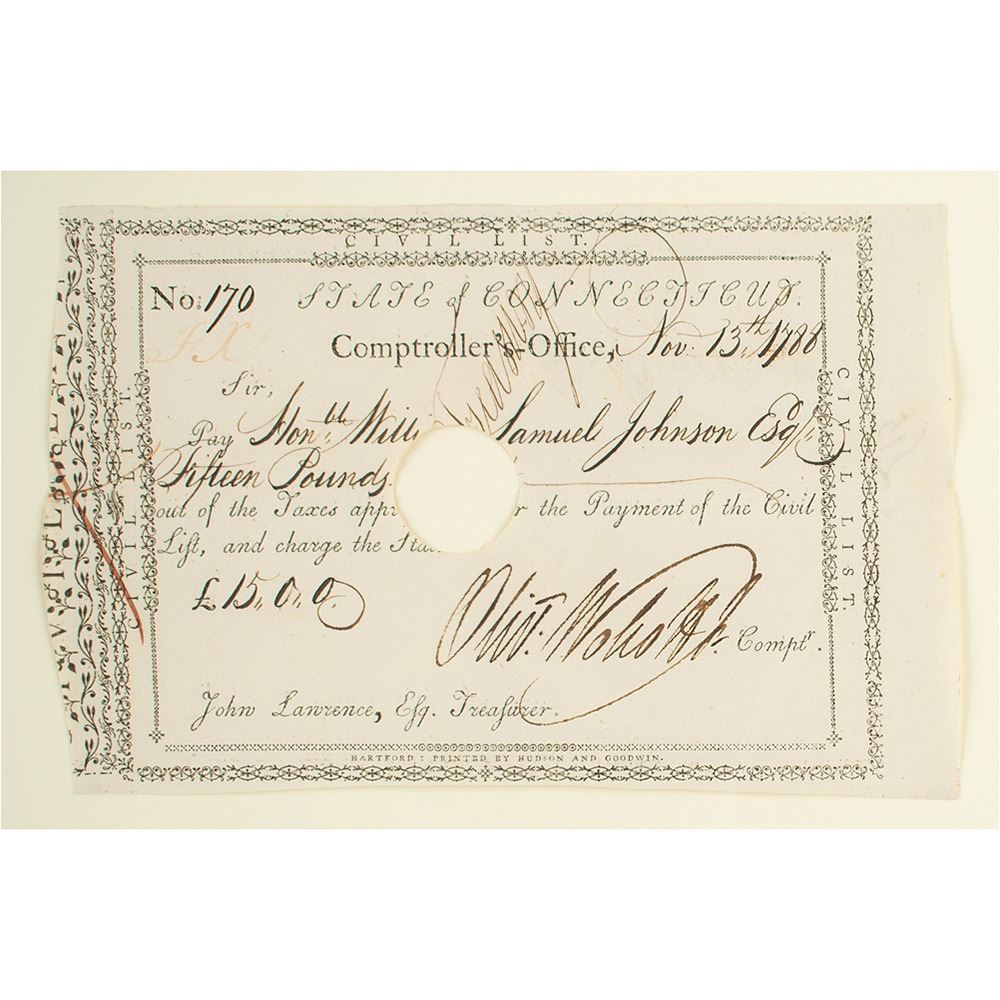 CIVIL LIST.
No: 170 STATE of CONNECTICUT.
Comptroller's-Office, Nov. 13th 1788
Sir,
Pay Honble Willi Samuel Johnson Esqr
Fifteen Pounds
out of the Taxes appr r the Payment of the Civil
List, and charge the Sta
£15,,0,,0
Olivr. Wolcott Jr. Comptr.
John Lawrence, Esq. Treasurer.
HARTFORD: PRINTED BY HUDSON AND GOODWIN.
CIVIL LIST.
CIVIL LIST.